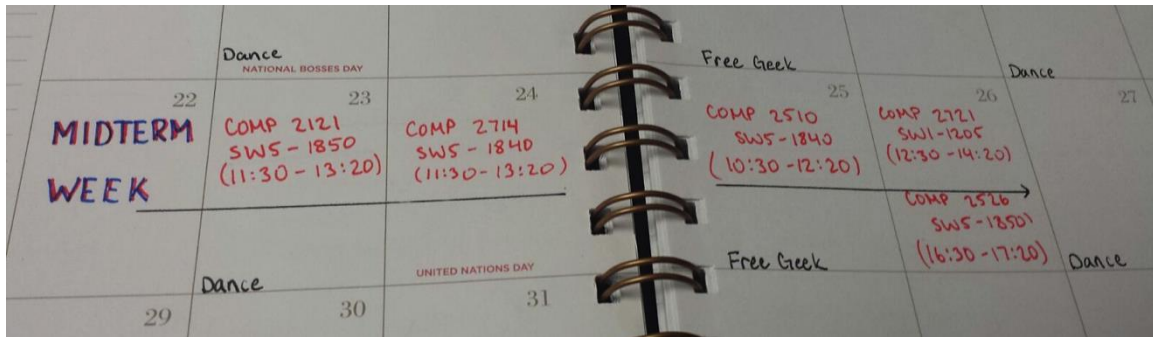 Dance
NATIONAL BOSSES DAY
Free Geek
Dance
22
23
24
25
26
27
MIDTERM
WEEK
COMP 2121
SW5-1850
(11:30-13:20)
COMP 2714
SW5-1840
(11:30-13:20)
COMP 2510
SW5-1840
(10:30-12:20)
COMP 2721
SW1-1205
(12:30-14:20)
COMP 2526
SW5-1850
(16:30-17:20)
Dance
UNITED NATIONS DAY
Free Geek
Dance
29
30
31